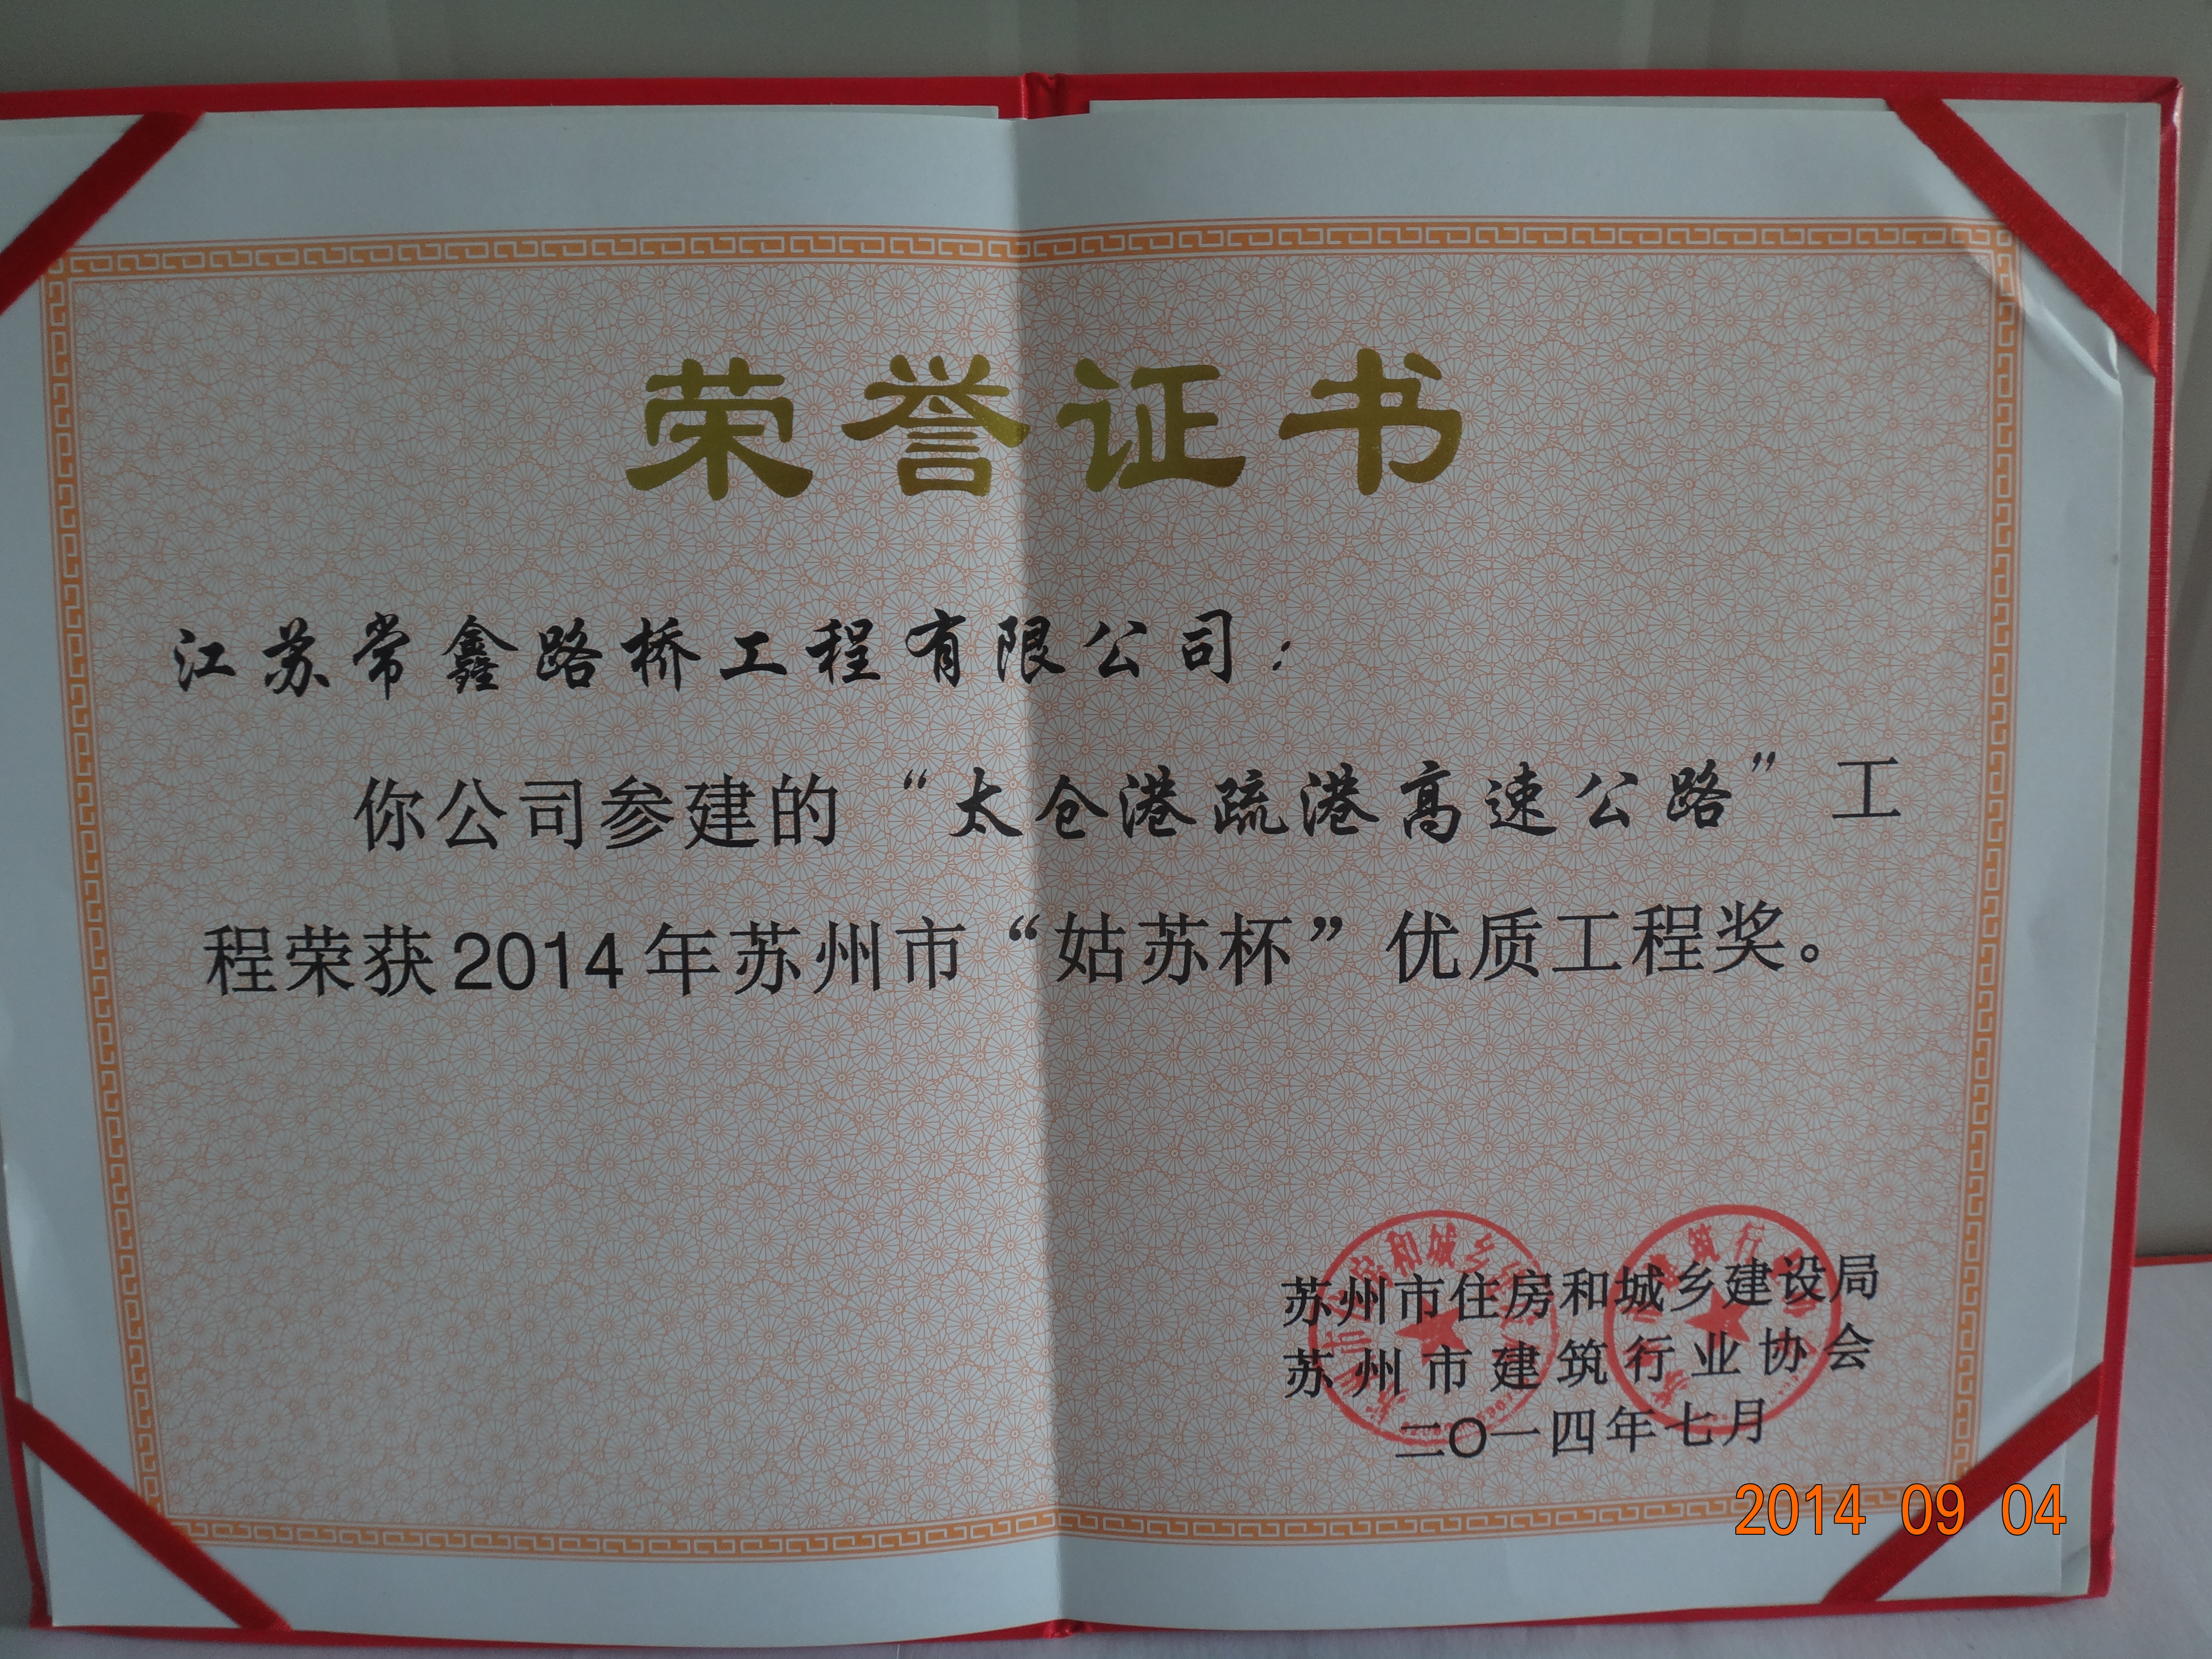 荣誉证书
江苏常鑫路桥工程有限公司：
你公司参建的“太仓港疏港高速公路”工
程荣获2014年苏州市“姑苏杯”优质工程奖。
苏州市住房和城乡建设局
苏州市建筑行业协会
二〇一四年七月
2014 09 04